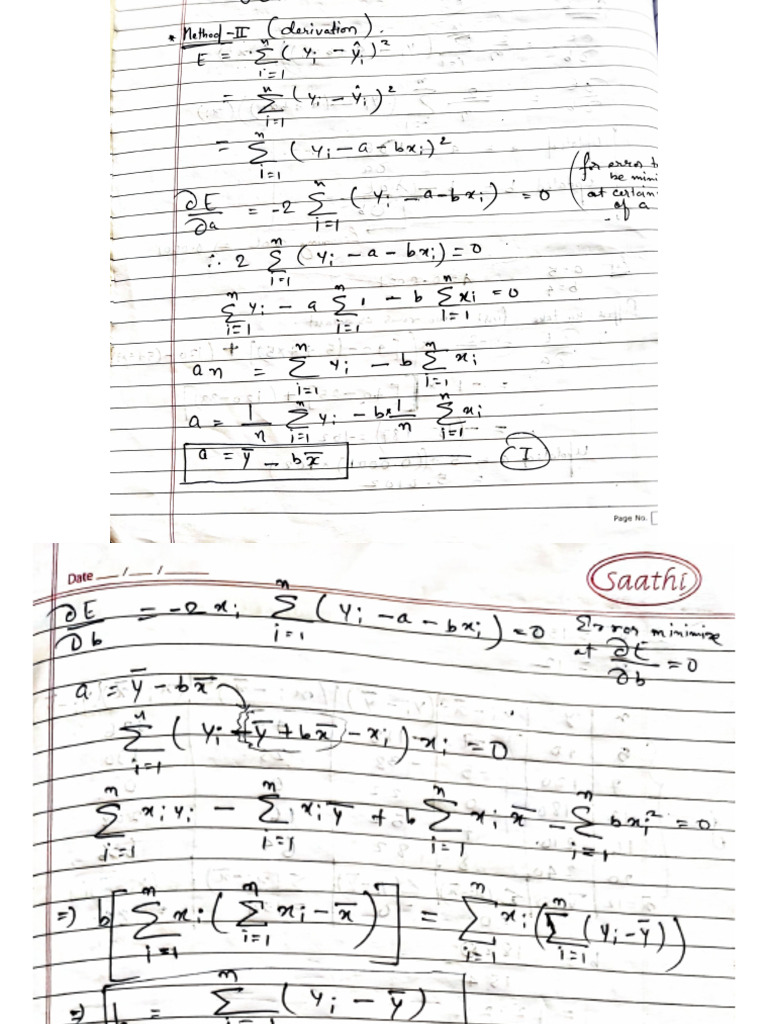 * Method-II (derivation).
E = Σ_{i=1}^{n} (yᵢ - ŷᵢ)²
= Σ_{i=1}^{n} (yᵢ - ŷᵢ)²
= Σ_{i=1}^{n} (yᵢ - a - bxᵢ)²
∂E/∂a = -2 Σ_{i=1}^{n} (yᵢ - a - bxᵢ) = 0 (for error
be mini
at certain
of a
∴ 2 Σ_{i=1}^{n} (yᵢ - a - bxᵢ) = 0
Σ_{i=1}^{n} yᵢ - a Σ_{i=1}^{n} 1 - b Σ_{i=1}^{n} xᵢ = 0
an = Σ_{i=1}^{n} yᵢ - b Σ_{i=1}^{n} xᵢ
a = 1/n Σ_{i=1}^{n} yᵢ - b×1/n Σ_{i=1}^{n} xᵢ
a = ȳ - bx̄ —— I
Page No.
Date __/__/__ Saathi
∂E/∂b = -2xᵢ Σ_{i=1}^{n} (yᵢ - a - bxᵢ) = 0 Error minimize
at ∂E/∂b = 0
a = ȳ - bx̄
Σ_{i=1}^{n} (yᵢ - ȳ + bx̄ - xᵢ) xᵢ = 0
Σ_{i=1}^{n} xᵢyᵢ - Σ_{i=1}^{n} xᵢȳ + b Σ_{i=1}^{n} xᵢ x̄ - Σ_{i=1}^{n} bxᵢ² = 0
⇒ b[Σ_{i=1}^{n} xᵢ (Σ_{i=1}^{n} xᵢ - x̄)] = Σ_{i=1}^{n} xᵢ (Σ_{i=1}^{n} (yᵢ - ȳ))
⇒ b = Σ^{n} (yᵢ - ȳ)